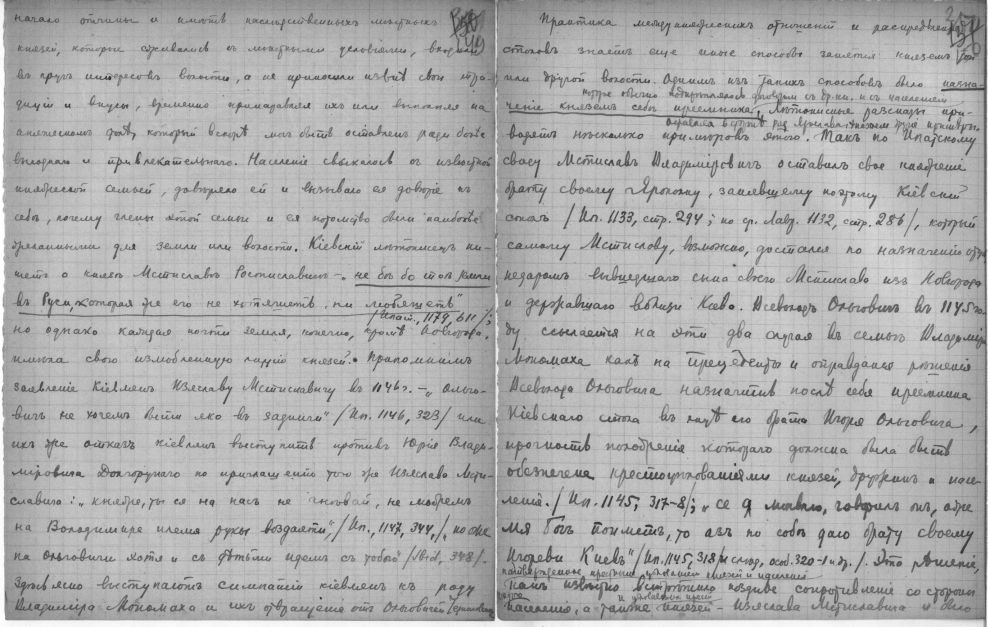 начало отчины и
князей, которые сживались съ мѣстными условіями, входили
въ кругъ интересовъ волости, а не приносили извнѣ свои тра-
диціи и вкусы, временно
который вскорѣ могъ быть оставленъ ради болѣе
выгоднаго и привлекательнаго. Населеніе свыкалось съ извѣстной
княжеской семьей, довѣряло ей и вызывало ея довѣріе къ
себѣ, почему члены этой семьи и ея потомство были наиболѣе
желанными для земли или волости. Кіевскій лѣтописецъ пи-
шетъ о князѣ Мстиславѣ Ростиславичѣ – не бѣ бо тоѣ земли
въ Руси, которая же его не хотяшеть, ни любяшеть"
/Ипат., 1179, 611/;
но однако каждая почти земля, конечно, кромѣ Новгорода,
имѣла свою излюбленную линію князей. Припомнимъ
заявленіе Кіевлянъ Изяславу Мстиславичу въ 1146 г. – „Ольго-
вичь не хочемъ быти яко въ задничи" /Ип. 1146, 323/ или
ихъ же отказъ кіевлянъ выступить противъ Юрія Влади-
міровича Долгорукаго по приглашенію того же Изяслава Мсти-
славича: „княже, ты ся на насъ не гнѣвай, не можемъ
на Володимире племя рукы въздаяти" /Ип., 1147, 344/, но же
на Ольговичи хотя и съ дѣтьми идемъ съ тобою /ibid, 348/.
Здѣсь явно выступаютъ симпатіи кіевлянъ къ роду
Владиміра Мономаха и ихъ отвращеніе отъ Ольговичей
Практика междукняжескихъ отношеній и распредѣленія
столовъ знаетъ еще иные способы занятія княземъ той
или другой волости. Однимъ изъ такихъ способовъ было назна-
ченіе княземъ себѣ преемника. Лѣтописные разсказы при-
водятъ нѣсколько примѣровъ этого. Такъ по Ипатскому
своду Мстиславъ Владиміровичъ оставилъ свое княженіе
брату своему Ярополку, занявшему поэтому Кіевскій
столъ /Ип. 1133, стр. 294; по ср. Лавр. 1132, стр. 286/, который
самому Мстиславу, возможно, достался по назначенію отца
недаромъ выведшаго сына своего Мстислава изъ Новгорода
и державшаго вблизи Кіева. Всеволодъ Ольговичъ въ 1145 го-
ду ссылается на эти два случая въ семьѣ Владиміра
Мономаха какъ на прецеденты и оправданья рѣшенія
Всеволода Ольговича назначить послѣ себя преемника
Кіевскаго стола въ лицѣ его брата Игоря Ольговича,
прочность котораго должна была быть
обезпечена крестоцѣлованіями князей, дружины и насе-
ленія. /Ип. 1145, 317-8/; „се я мольлю, говорилъ онъ, оже
мя Богъ поиметь, то азъ по собѣ даю брату своему
Игореви Киевъ" /Ип. 1145, 318 и слѣд., особ. 320-1 и др./. Это рѣшеніе,
какъ извѣстно, встрѣтило позднѣе сопротивленіе со стороны
населенія, а также князей – Изяслава Мстиславича и было